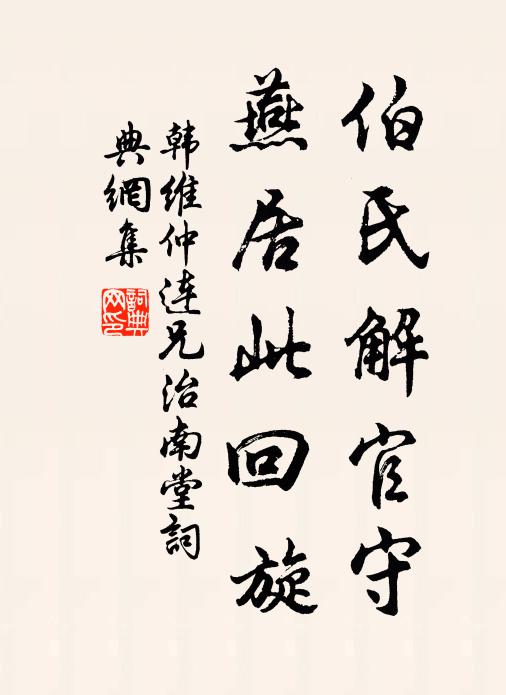 伯氏解官守
燕居此回旋
韩维仲连兄治南堂詞
典網集
詞典
网印